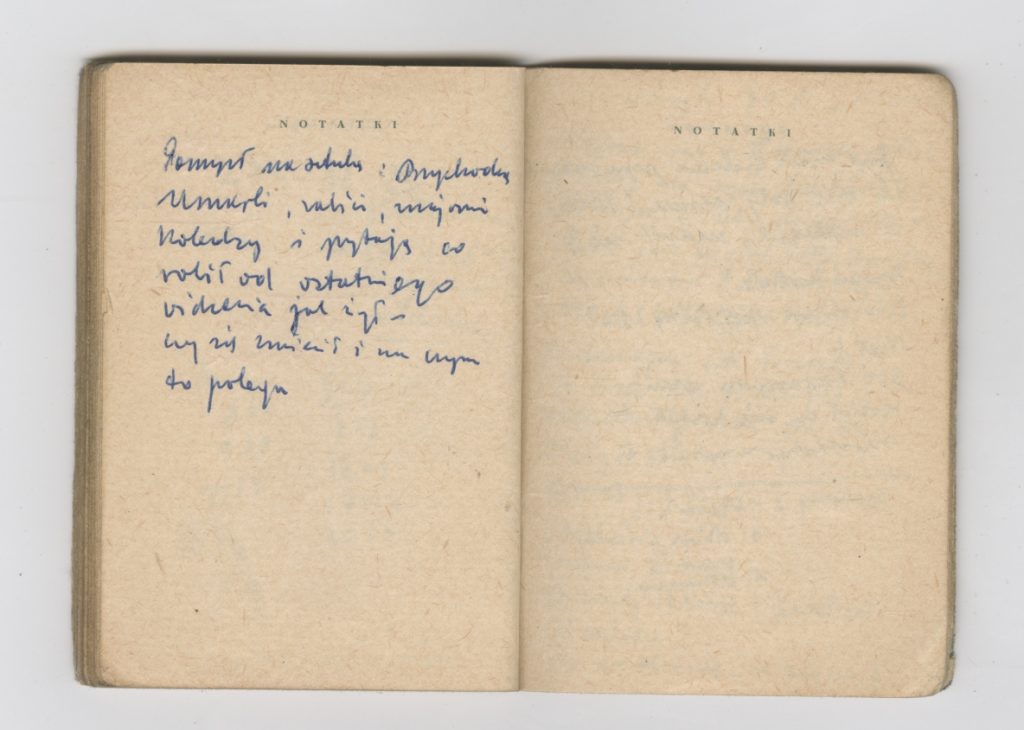 NOTATKI
Pomysł na sztukę : Przychodzą
Umarli, rodzice, znajomi
Koledzy i pytają co
robił od ostatniego
widzenia jak żył –
czy się zmienił i na czym
to polega
NOTATKI